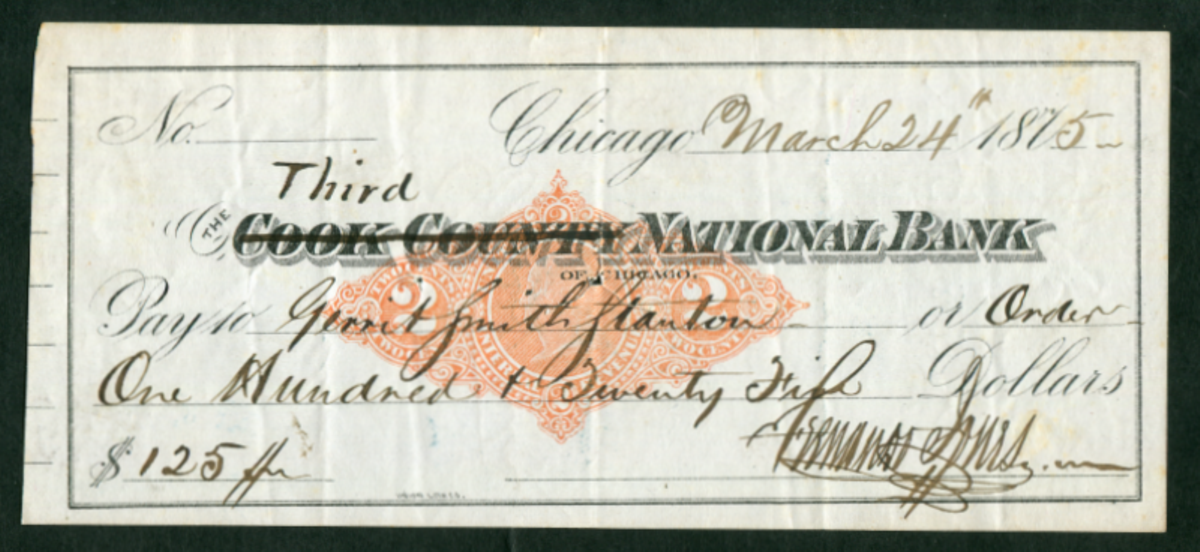 No. Chicago March 24th 1875
Third
THE COOK COUNTY NATIONAL BANK
OF CHICAGO.
Pay to Gerrit Smith Stanton or Order
One Hundred & Twenty Five Dollars
$125
2 2